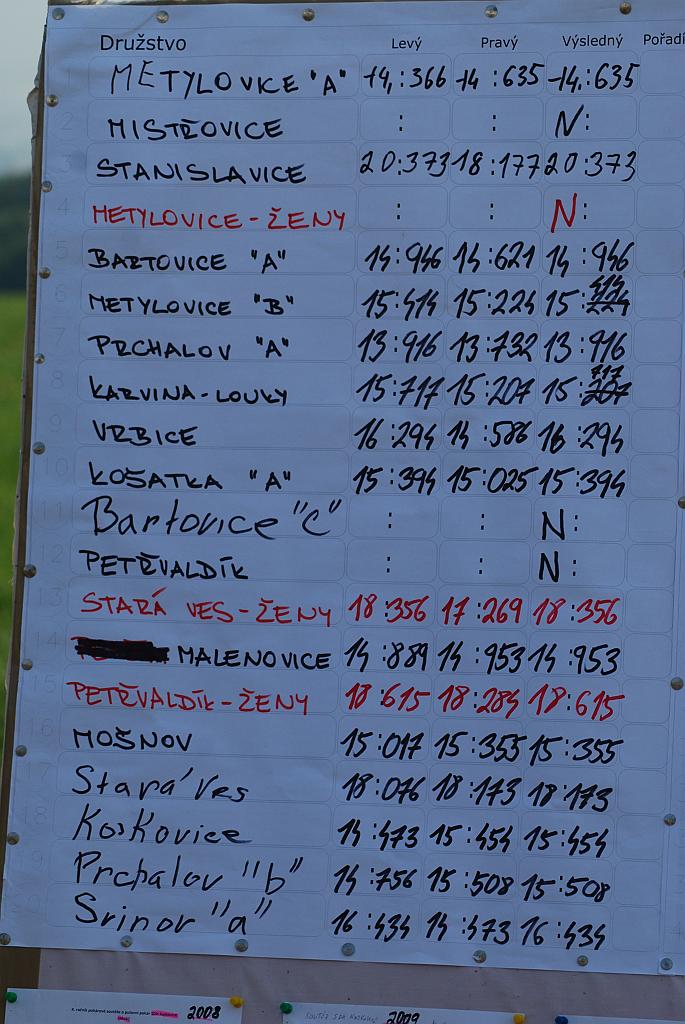 Družstvo Levý Pravý Výsledný Pořadí
1 METYLOVICE "A" 14:366 14:635 14:635
2 MISTŘOVICE : : N:
3 STANISLAVICE 20:373 18:177 20:373
4 METYLOVICE-ŽENY : : N:
5 BARTOVICE "A" 14:946 14:621 14:946
6 METYLOVICE "B" 15:414 15:224 15:414
7 PRCHALOV "A" 13:916 13:732 13:916
8 KARVINA-LOUKY 15:717 15:207 15:717
9 VRBICE 16:294 14:586 16:294
10 KOŠATKA "A" 15:394 15:025 15:394
11 Bartovice "C" : : N:
12 PETŘVALDÍK : : N:
13 STARÁ VES-ŽENY 18:356 17:269 18:356
14 MALENOVICE 14:889 14:953 14:953
15 PETŘVALDÍK-ŽENY 18:615 18:284 18:615
16 MOŠNOV 15:017 15:355 15:355
17 Stará Ves 18:076 18:173 18:173
18 Koskovice 14:473 15:454 15:454
19 Prchalov "b" 14:756 15:508 15:508
20 Srinov "a" 16:434 14:473 16:434
2008 2009